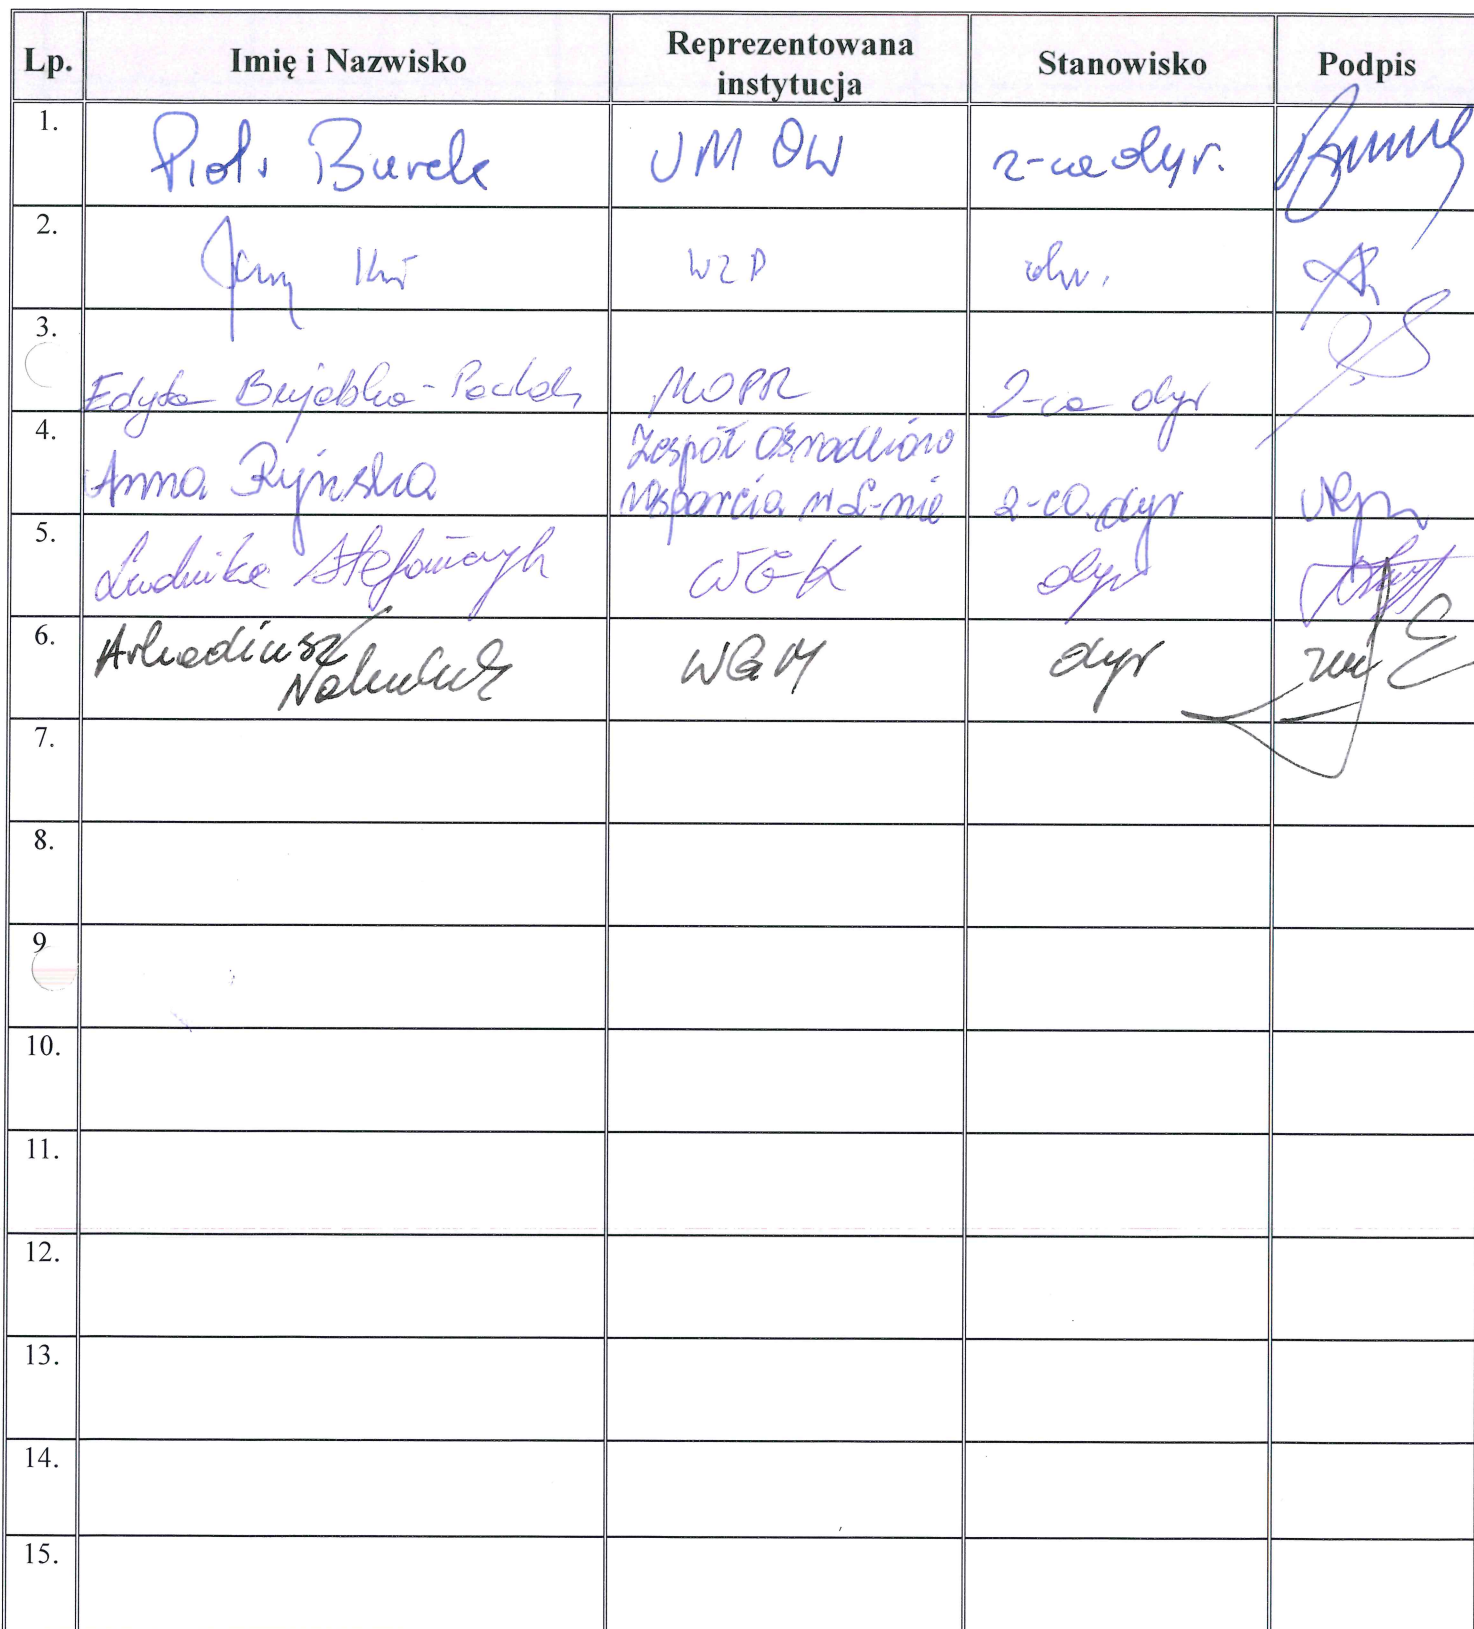 Lp. Imię i Nazwisko Reprezentowana instytucja Stanowisko Podpis
1. Piotr Burek UM OW z-ca dyr.
2. Jerzy WZP dyr.
3. Edyta MOPR Z-ca dyr
4. Anna Ryńska Zespół Ośrodków
Wsparcia w L-nie z-ca dyr
5. Ludwika Stefańczyk WGK dyr
6. Arkadiusz WGM dyr
7.
8.
9
10.
11.
12.
13.
14.
15.